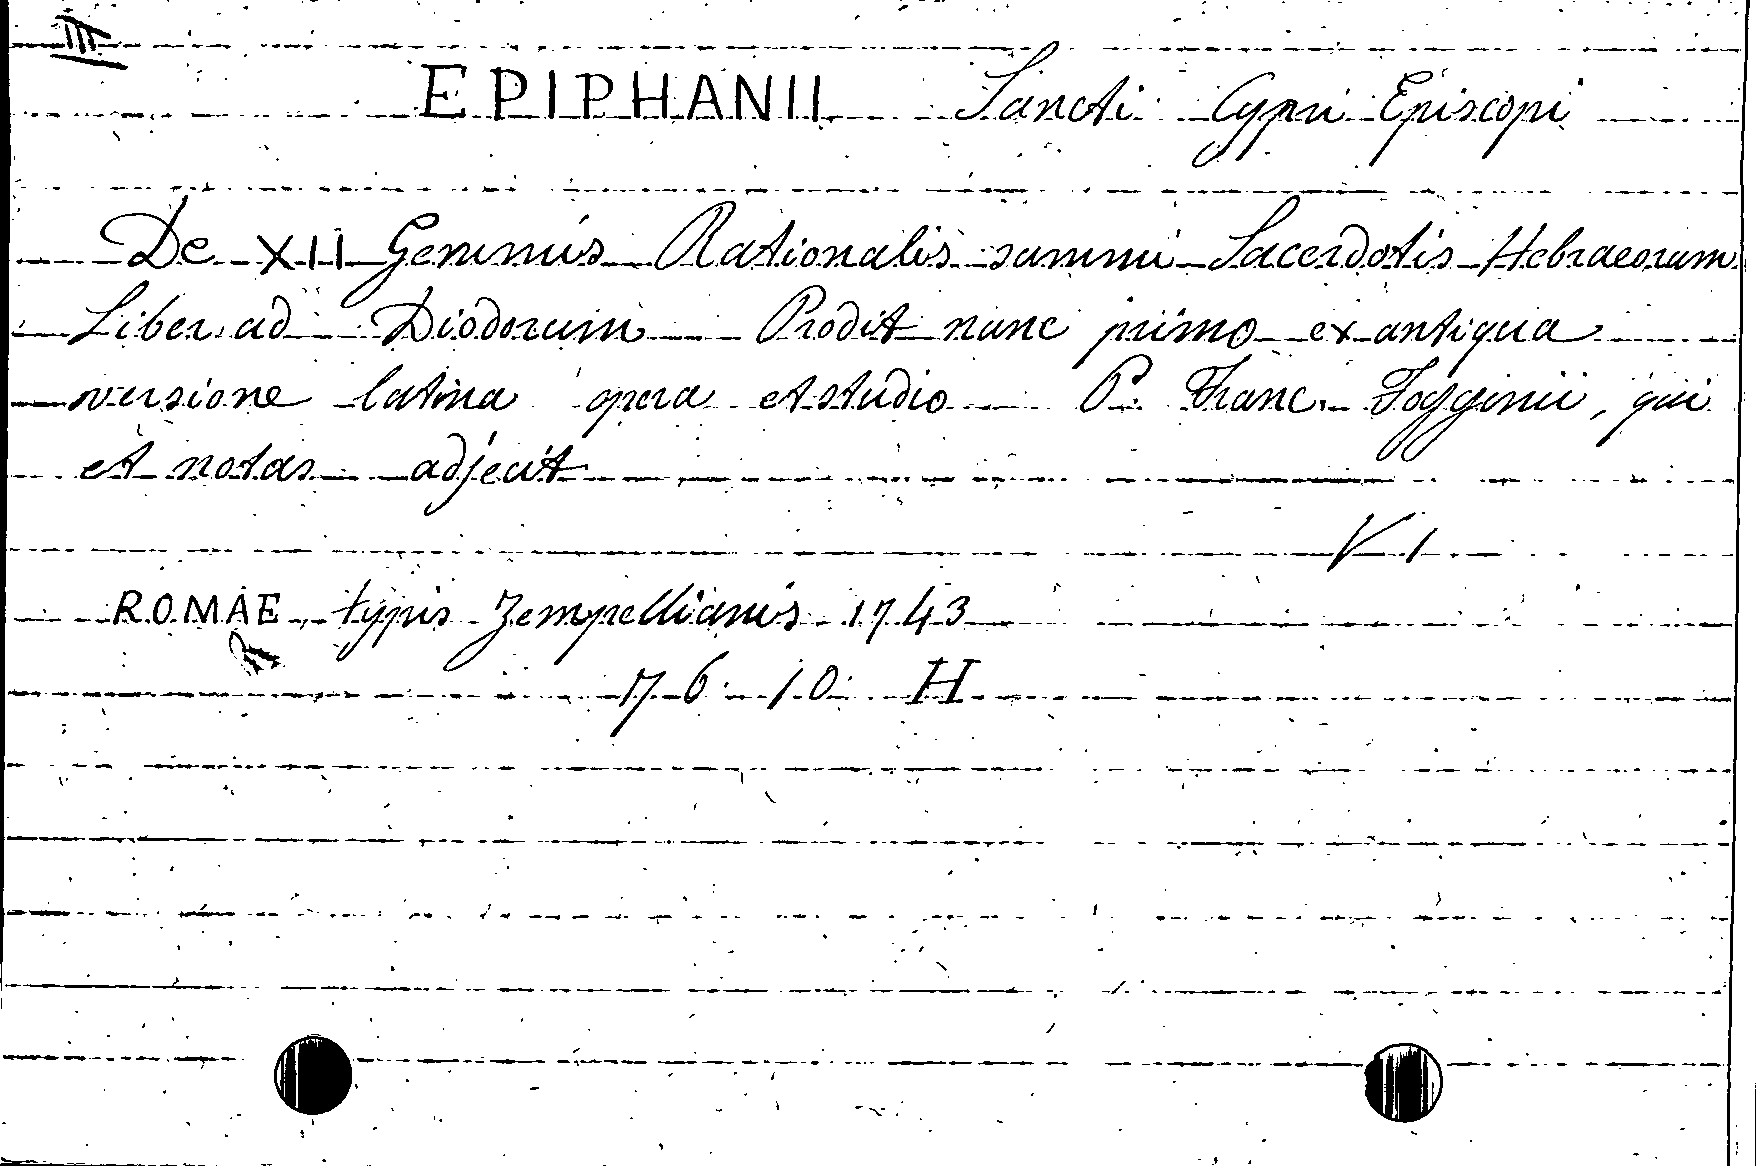 III
EPIPHANII Sancti Cypri Episcopi
De XII Gemmis Rationalis summi Sacerdotis Hebraeorum
Liber ad Diodorum Prodit nunc primo ex antiqua
versione latina opera et studio P. Franc. Fogginii, qui
et notas adjecit
V 1
ROMAE typis Zempellianis 1743
76 10 H